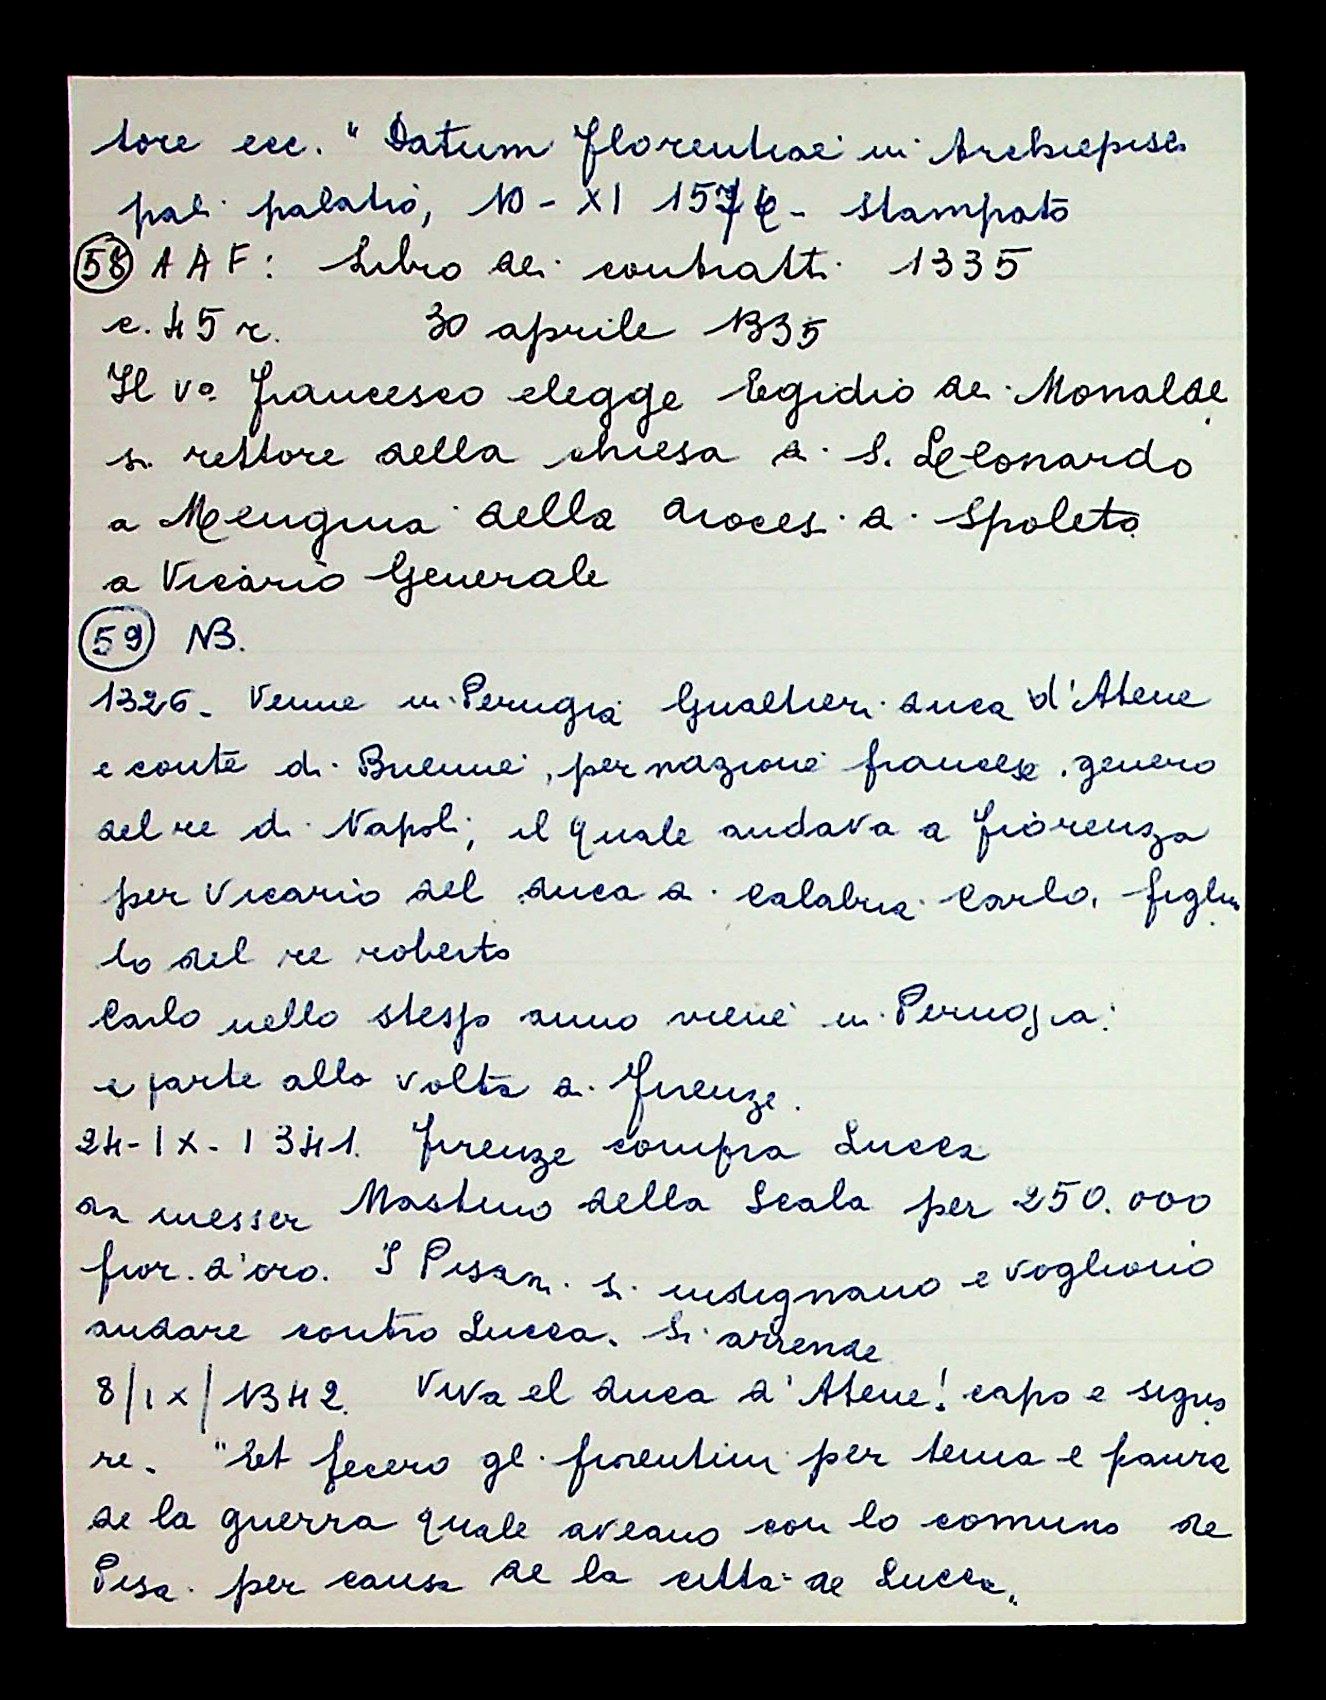 tore ecc. " Datum Florentiae in Archiepisco
pali palatio, 10 - XI 1576 - stampato
58 AAF: Libro dei contratti 1335
c. 45 r. 30 aprile 1335
Il vo Francesco elegge Egidio dei Monalde
si rettore della chiesa di S. Leonardo
a della dioces. di Spoleto
a Vicario Generale
59 NB.
1326. Venne in Perugia Gualtieri duca d'Atene
e conte di Brienne, per nazione francese, genero
del re di Napoli; il quale andava a Fiorenza
per Vicario del duca di Calabria Carlo, figliu
lo del re roberto
Carlo nello stesso anno viene in Perugia:
e parte alla volta di Firenze.
24-IX-1341. Firenze compra Lucca
da messer Mastino della Scala per 250.000
fior. d'oro. I Pisani si indegnano e vogliono
andare contro Lucca. Si arrende
8/IX/1342. Viva el duca d'Atene! capo e signo
re. "Et fecero gli fiorentini per tema e paura
de la guerra quale aveano con lo comuno de
Pisa per causa de la città de Lucca."